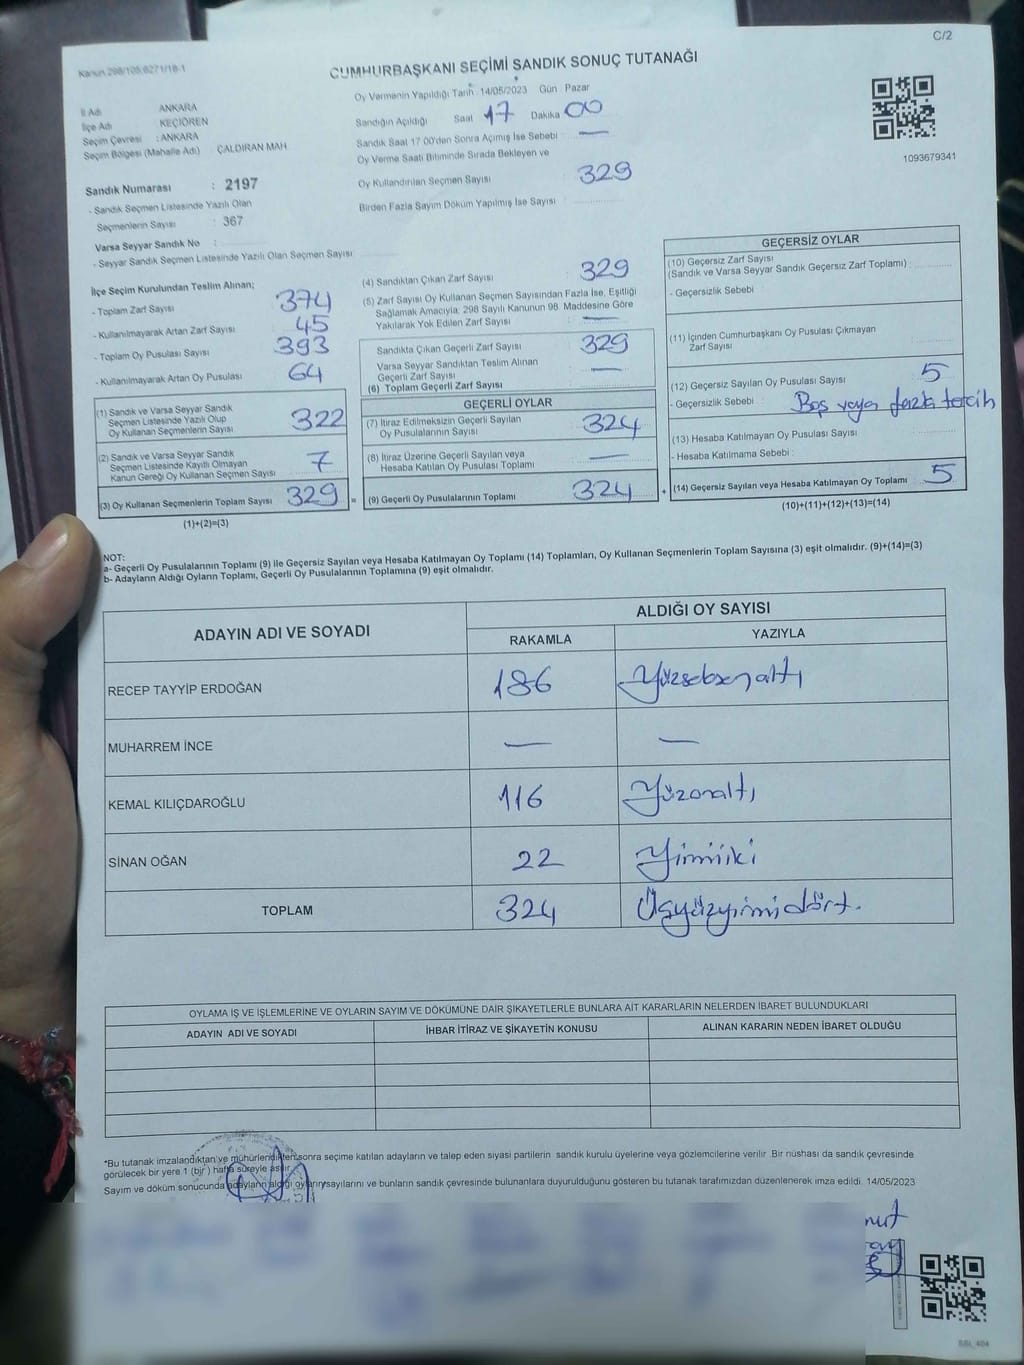 C/2
Kanun.298/105,6271/18-1
CUMHURBAŞKANI SEÇİMİ SANDIK SONUÇ TUTANAĞI
Oy Vermenin Yapıldığı Tarih 14/05/2023 Gün Pazar
İl Adı ANKARA
İlçe Adı KEÇİÖREN
Seçim Çevresi : ANKARA
Seçim Bölgesi (Mahalle Adı) ÇALDIRAN MAH
Sandığın Açıldığı Saat 17 Dakika 00
Sandık Saat 17 00'den Sonra Açmış İse Sebebi : —
Oy Verme Saati Bitiminde Sırada Bekleyen ve
Oy Kullandırılan Seçmen Sayısı : 329
Birden Fazla Sayım Döküm Yapılmış İse Sayısı
1093679341
Sandık Numarası : 2197
- Sandık Seçmen Listesinde Yazılı Olan
Seçmenlerin Sayısı : 367
Varsa Seyyar Sandık No :
- Seyyar Sandık Seçmen Listesinde Yazılı Olan Seçmen Sayısı
İlçe Seçim Kurulundan Teslim Alınan;
- Toplam Zarf Sayısı 374
- Kullanılmayarak Artan Zarf Sayısı 45
- Toplam Oy Pusulası Sayısı 393
- Kullanılmayarak Artan Oy Pusulası 64
(1) Sandık ve Varsa Seyyar Sandık
Seçmen Listesinde Yazılı Olup
Oy Kullanan Seçmenlerin Sayısı 322
(2) Sandık ve Varsa Seyyar Sandık
Seçmen Listesinde Kayıtlı Olmayan
Kanun Gereği Oy Kullanan Seçmen Sayısı 7
(3) Oy Kullanan Seçmenlerin Toplam Sayısı 329 =
(1)+(2)=(3)
(4) Sandıktan Çıkan Zarf Sayısı 329
(5) Zarf Sayısı Oy Kullanan Seçmen Sayısından Fazla İse, Eşitliği
Sağlamak Amacıyla; 298 Sayılı Kanunun 98. Maddesine Göre
Yakılarak Yok Edilen Zarf Sayısı —
Sandıkta Çıkan Geçerli Zarf Sayısı 329
Varsa Seyyar Sandıktan Teslim Alınan
Geçerli Zarf Sayısı —
(6) Toplam Geçerli Zarf Sayısı
GEÇERLİ OYLAR
(7) İtiraz Edilmeksizin Geçerli Sayılan
Oy Pusulalarının Sayısı 324
(8) İtiraz Üzerine Geçerli Sayılan veya
Hesaba Katılan Oy Pusulası Toplamı —
(9) Geçerli Oy Pusulalarının Toplamı 324 +
GEÇERSİZ OYLAR
(10) Geçersiz Zarf Sayısı
(Sandık ve Varsa Seyyar Sandık Geçersiz Zarf Toplamı) :
- Geçersizlik Sebebi :
(11) İçinden Cumhurbaşkanı Oy Pusulası Çıkmayan
Zarf Sayısı
(12) Geçersiz Sayılan Oy Pusulası Sayısı 5
- Geçersizlik Sebebi : Boş veya fazla tercih
(13) Hesaba Katılmayan Oy Pusulası Sayısı
- Hesaba Katılmama Sebebi :
(14) Geçersiz Sayılan veya Hesaba Katılmayan Oy Toplamı 5
(10)+(11)+(12)+(13)=(14)
NOT:
a- Geçerli Oy Pusulalarının Toplamı (9) ile Geçersiz Sayılan veya Hesaba Katılmayan Oy Toplamı (14) Toplamları, Oy Kullanan Seçmenlerin Toplam Sayısına (3) eşit olmalıdır. (9)+(14)=(3)
b- Adayların Aldığı Oyların Toplamı, Geçerli Oy Pusulalarının Toplamına (9) eşit olmalıdır.
ADAYIN ADI VE SOYADI
ALDIĞI OY SAYISI
RAKAMLA YAZIYLA
RECEP TAYYİP ERDOĞAN 186 Yüzseksenaltı
MUHARREM İNCE — —
KEMAL KILIÇDAROĞLU 116 Yüzonaltı
SİNAN OĞAN 22 Yirmiiki
TOPLAM 324 Üçyüzyirmidört.
OYLAMA İŞ VE İŞLEMLERİNE VE OYLARIN SAYIM VE DÖKÜMÜNE DAİR ŞİKAYETLERLE BUNLARA AİT KARARLARIN NELERDEN İBARET BULUNDUKLARI
ADAYIN ADI VE SOYADI İHBAR İTİRAZ VE ŞİKAYETİN KONUSU ALINAN KARARIN NEDEN İBARET OLDUĞU
*Bu tutanak imzalandıktan ve mühürlendikten sonra seçime katılan adayların ve talep eden siyasi partilerin sandık kurulu üyelerine veya gözlemcilerine verilir. Bir nüshası da sandık çevresinde
görülecek bir yere 1 (bir) hafta süreyle asılır.
Sayım ve döküm sonucunda adayların aldığı oyların sayılarını ve bunların sandık çevresinde bulunanlara duyurulduğunu gösteren bu tutanak tarafımızdan düzenlenerek imza edildi. 14/05/2023